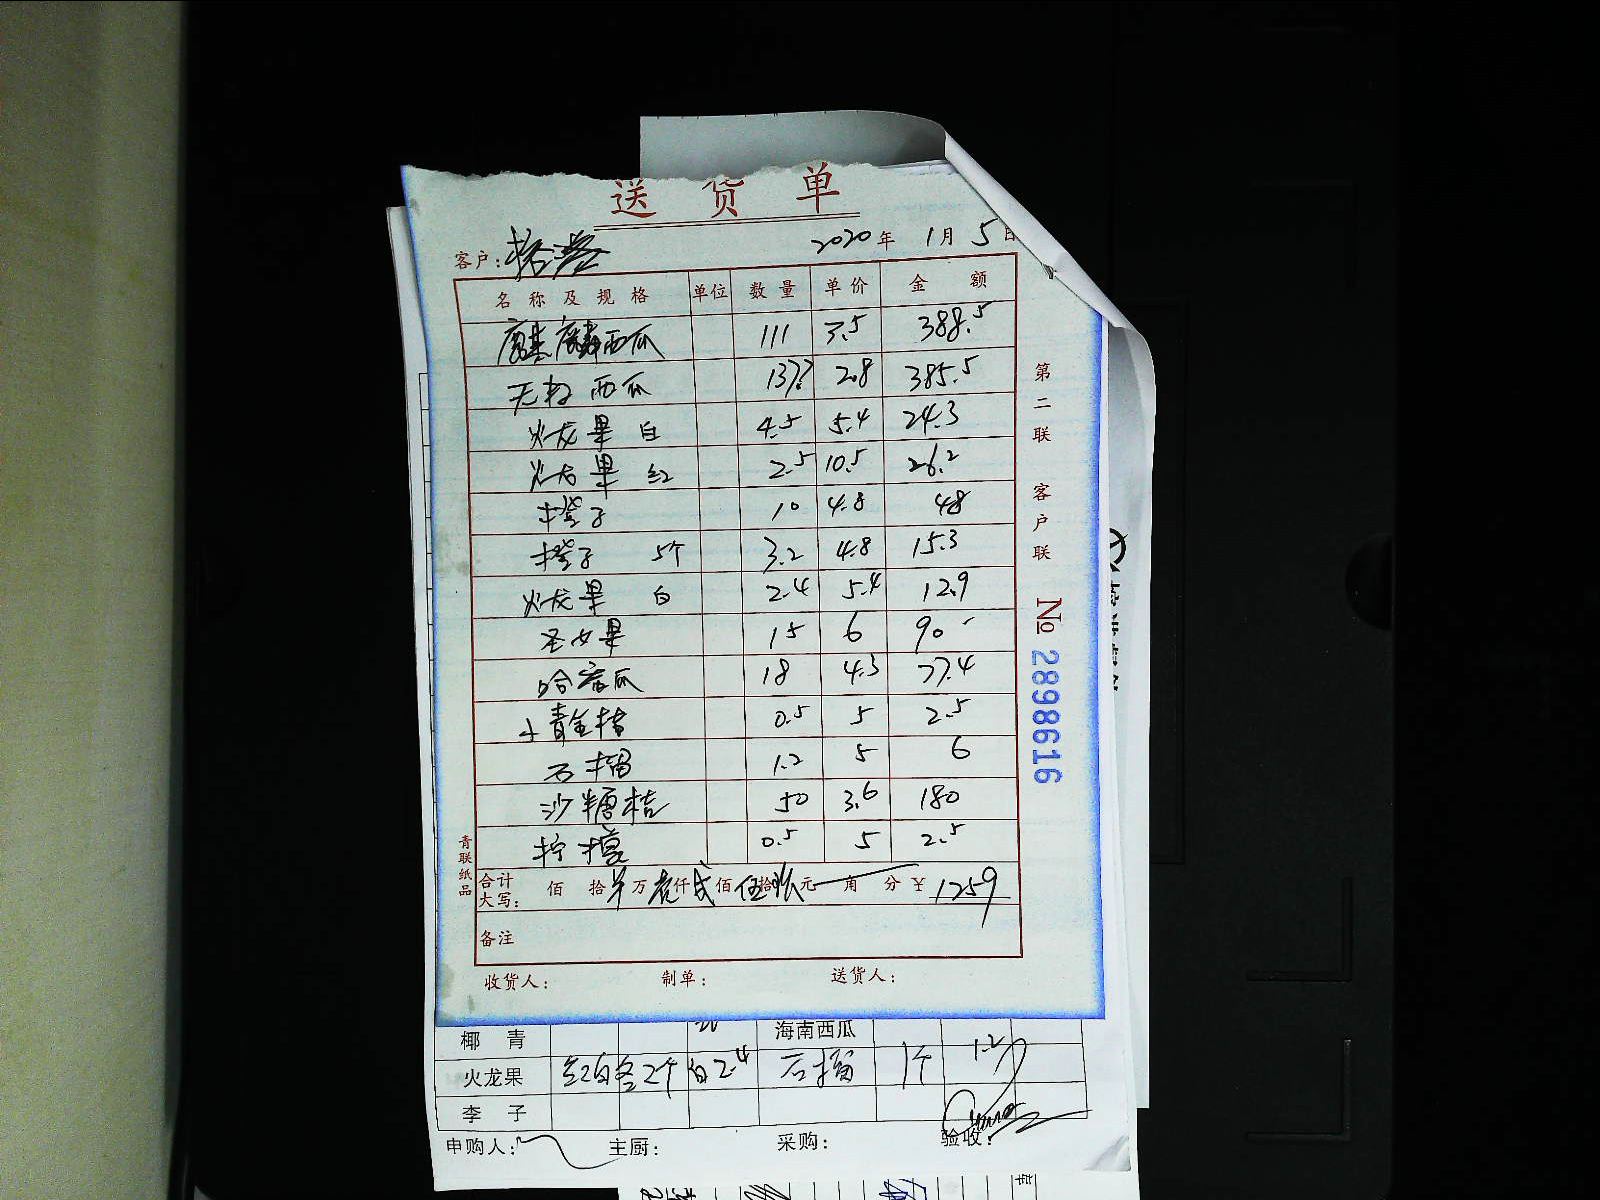 送货单
客户: 2020年 1月 5日
名称及规格 单位 数量 单价 金额
麒麟西瓜 111 3.5 388.5
无籽西瓜 137.7 2.8 385.5
火龙果 白 4.5 5.4 24.3
火龙果 红 2.5 10.5 26.2
橙子 10 4.8 48
橙子 5个 3.2 4.8 15.3
火龙果 白 2.4 5.4 12.9
圣女果 15 6 90
哈密瓜 18 4.3 77.4
小青金桔 0.5 5 2.5
石榴 1.2 5 6
沙糖桔 50 3.6 180
柠檬 0.5 5 2.5
合计大写: 佰 拾 万 壹仟 弍佰 伍拾 玖元 角 分 ¥ 1259
备注
收货人: 制单: 送货人:
第二联 客户联
No 2898616
青联纸品
椰青 海南西瓜
火龙果 红白各2个 白2.4 石榴 1个 1.2
李子
申购人: 主厨: 采购: 验收: